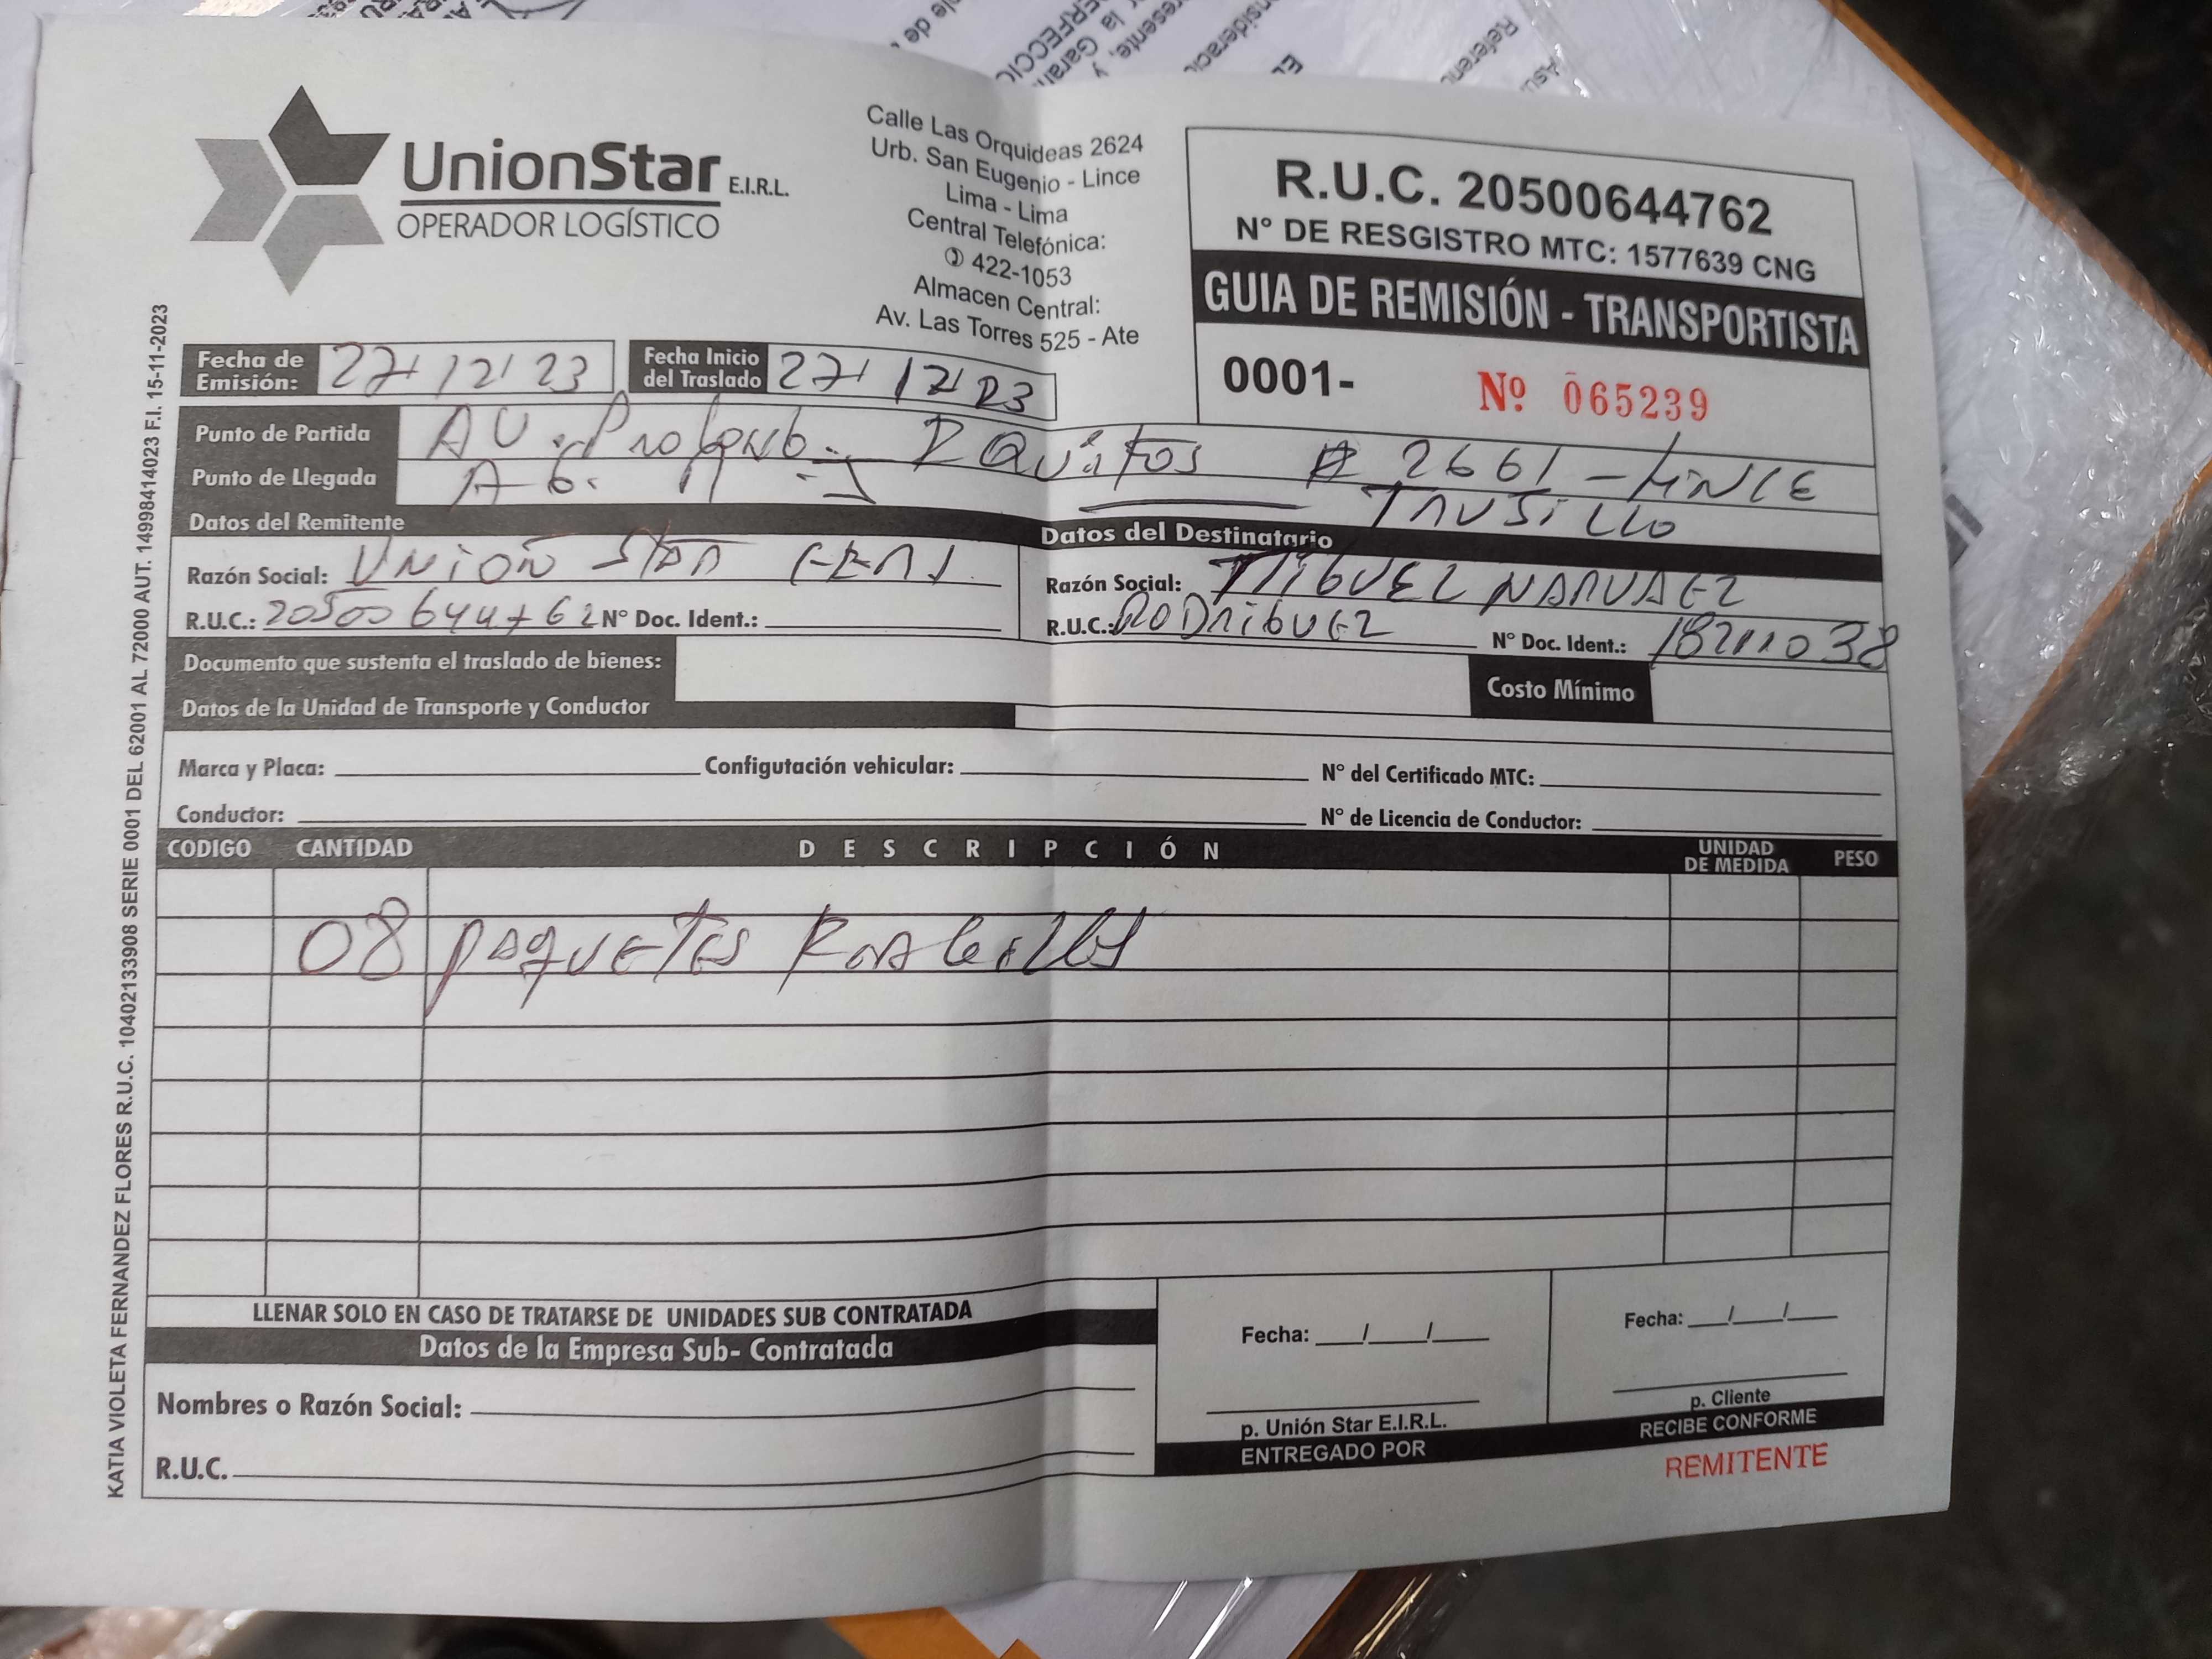 UnionStar E.I.R.L.
OPERADOR LOGÍSTICO
Calle Las Orquideas 2624
Urb. San Eugenio - Lince
Lima - Lima
Central Telefónica:
422-1053
Almacen Central:
Av. Las Torres 525 - Ate
R.U.C. 20500644762
N° DE RESGISTRO MTC: 1577639 CNG
GUIA DE REMISIÓN - TRANSPORTISTA
0001- Nº 065239
Fecha de Emisión: 27/12/23 Fecha Inicio del Traslado 27/12/23
Punto de Partida AV. Prolong. IQuitos # 2661 - LINCE
Punto de Llegada TRUJILLO
Datos del Remitente
Razón Social: UNION STAR
R.U.C.: 20500644762 N° Doc. Ident.:
Datos del Destinatario
Razón Social: MIGUEL NARVAEZ
R.U.C.: RODRIGUEZ N° Doc. Ident.: 18211038
Documento que sustenta el traslado de bienes:
Costo Mínimo
Datos de la Unidad de Transporte y Conductor
Marca y Placa: Configutación vehicular: N° del Certificado MTC:
Conductor: N° de Licencia de Conductor:
CODIGO CANTIDAD DESCRIPCIÓN UNIDAD DE MEDIDA PESO
08 PAQUETES
LLENAR SOLO EN CASO DE TRATARSE DE UNIDADES SUB CONTRATADA
Datos de la Empresa Sub- Contratada
Nombres o Razón Social:
R.U.C.
Fecha: ___/___/___
p. Unión Star E.I.R.L.
ENTREGADO POR
Fecha: ___/___/___
p. Cliente
RECIBE CONFORME
REMITENTE
KATIA VIOLETA FERNANDEZ FLORES R.U.C. 10402133908 SERIE 0001 DEL 62001 AL 72000 AUT. 14998414023 F.I. 15-11-2023